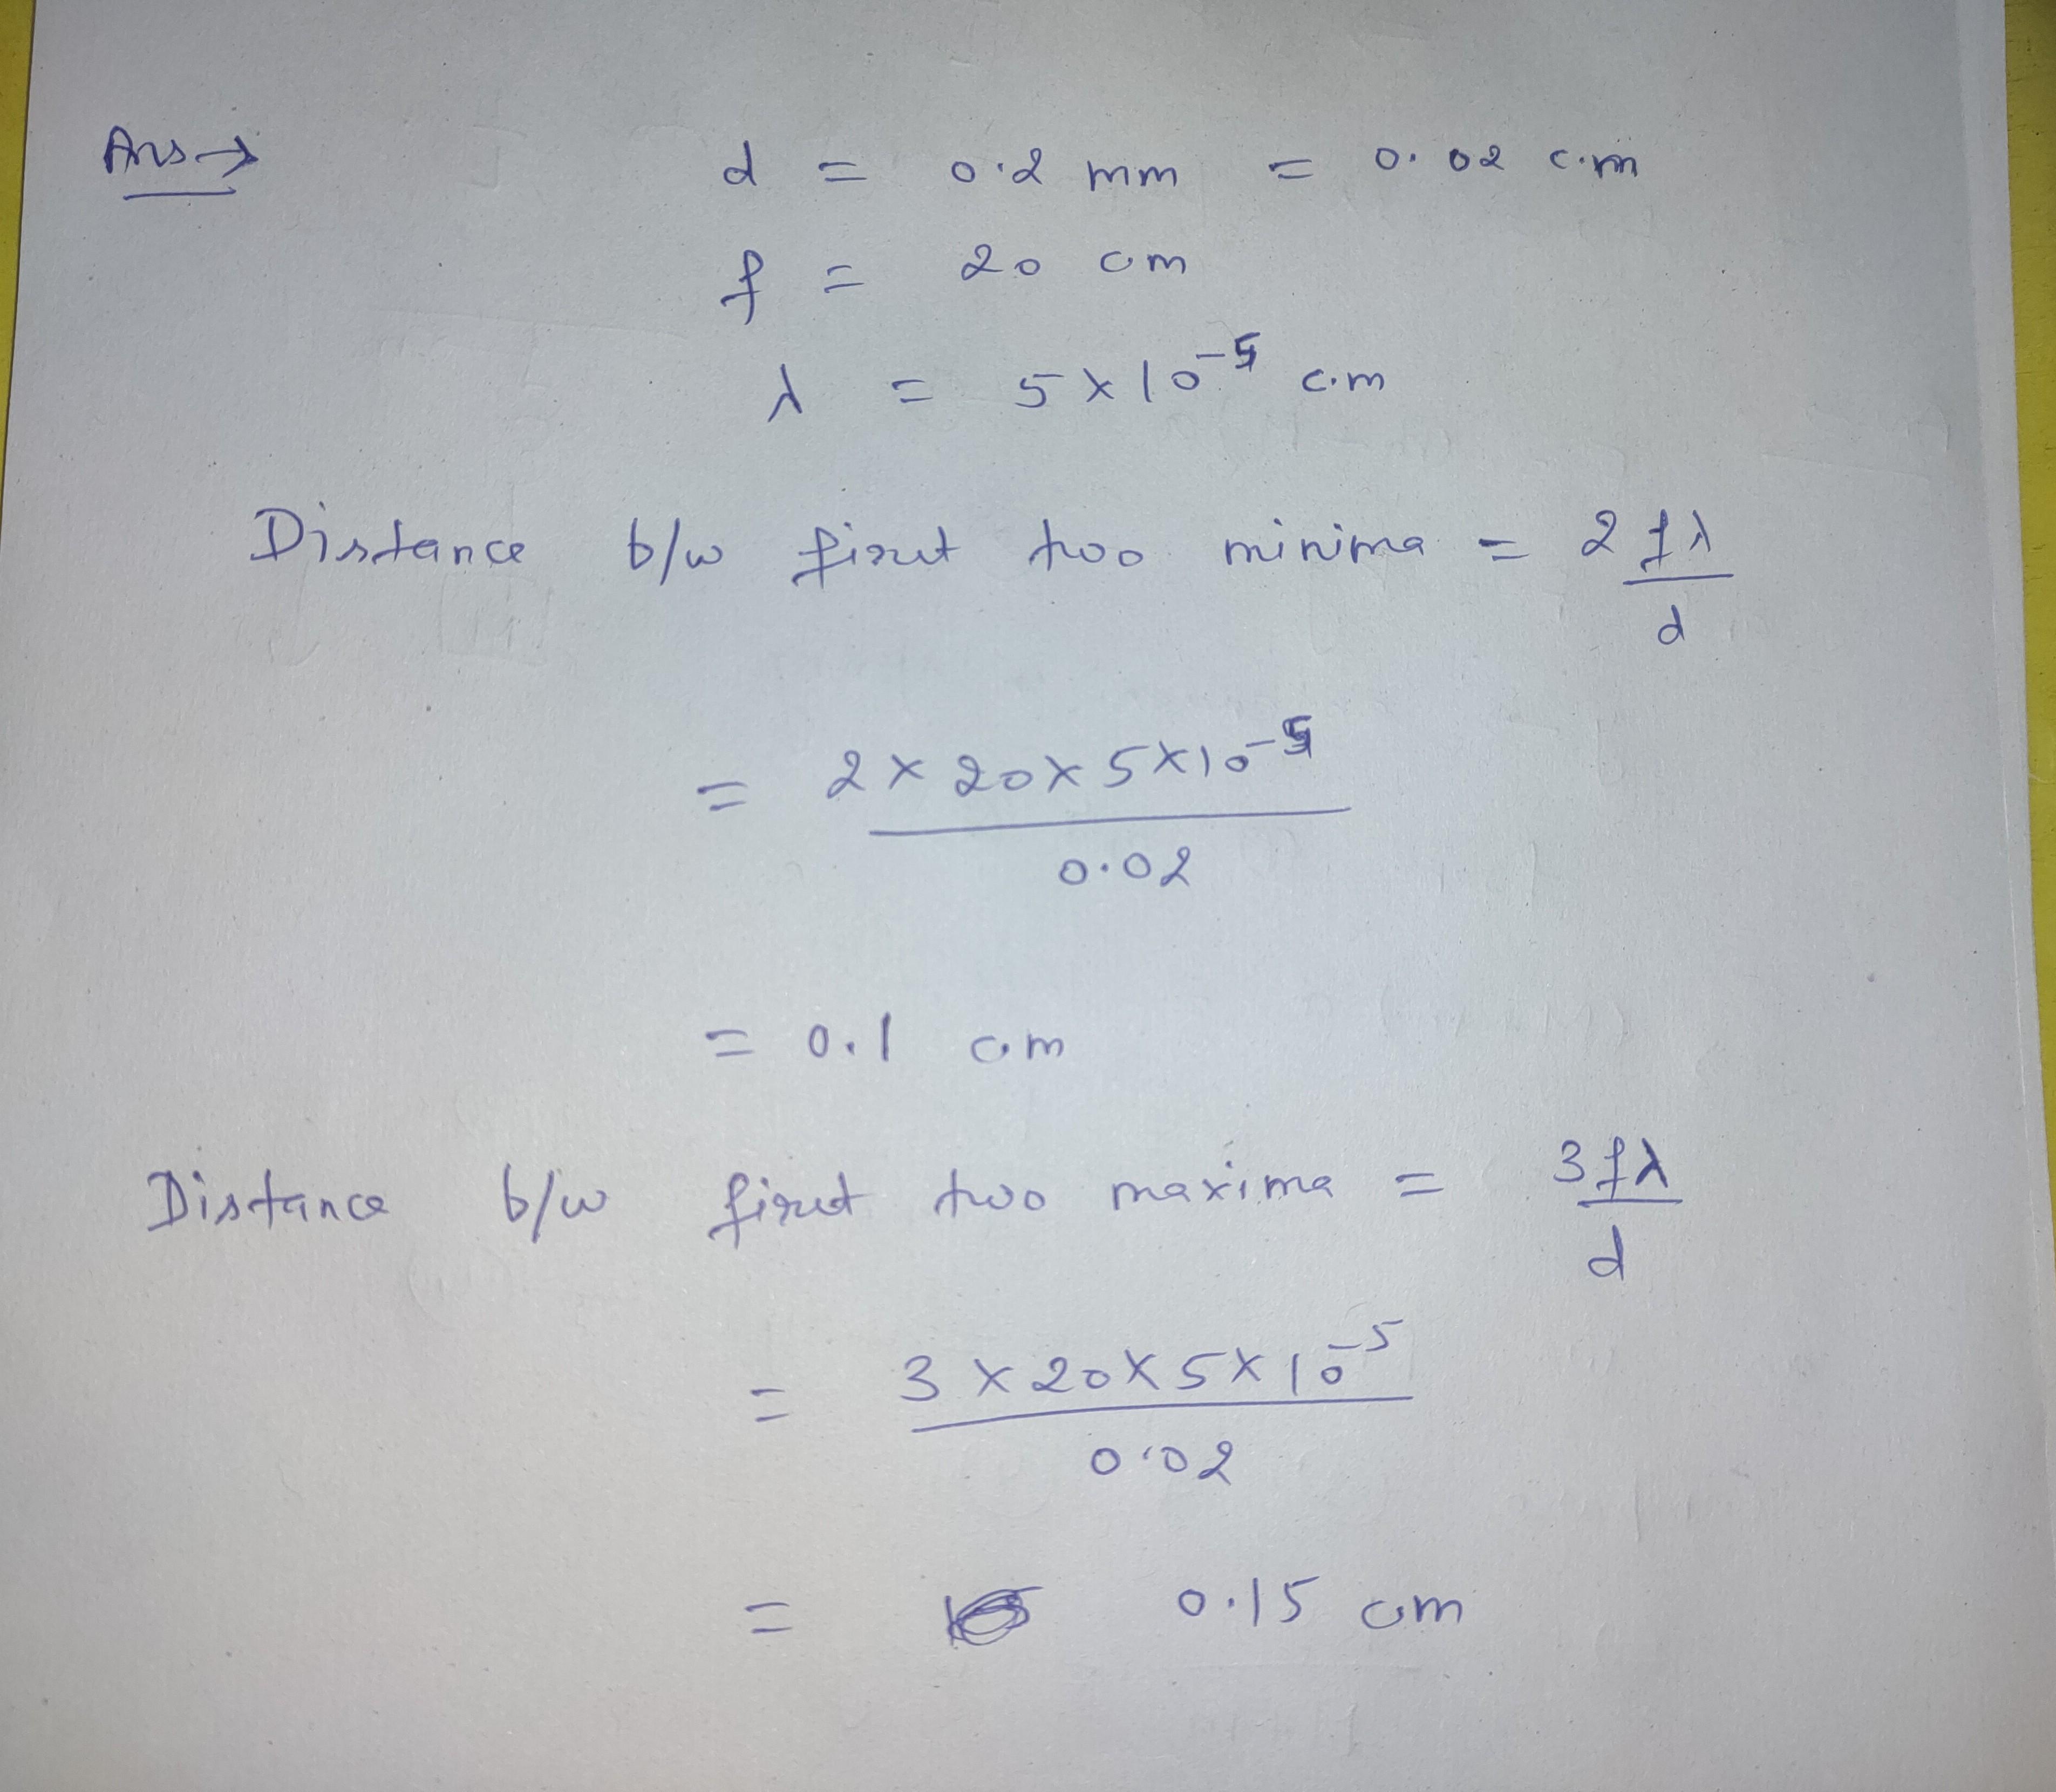 Ans → d = 0.2 mm = 0.02 c.m
f = 20 cm
λ = 5 × 10⁻⁵ c.m
Distance b/w first two minima = 2 fλ / d
= 2 × 20 × 5 × 10⁻⁵ / 0.02
= 0.1 cm
Distance b/w first two maxima = 3 fλ / d
= 3 × 20 × 5 × 10⁻⁵ / 0.02
= 0.15 cm